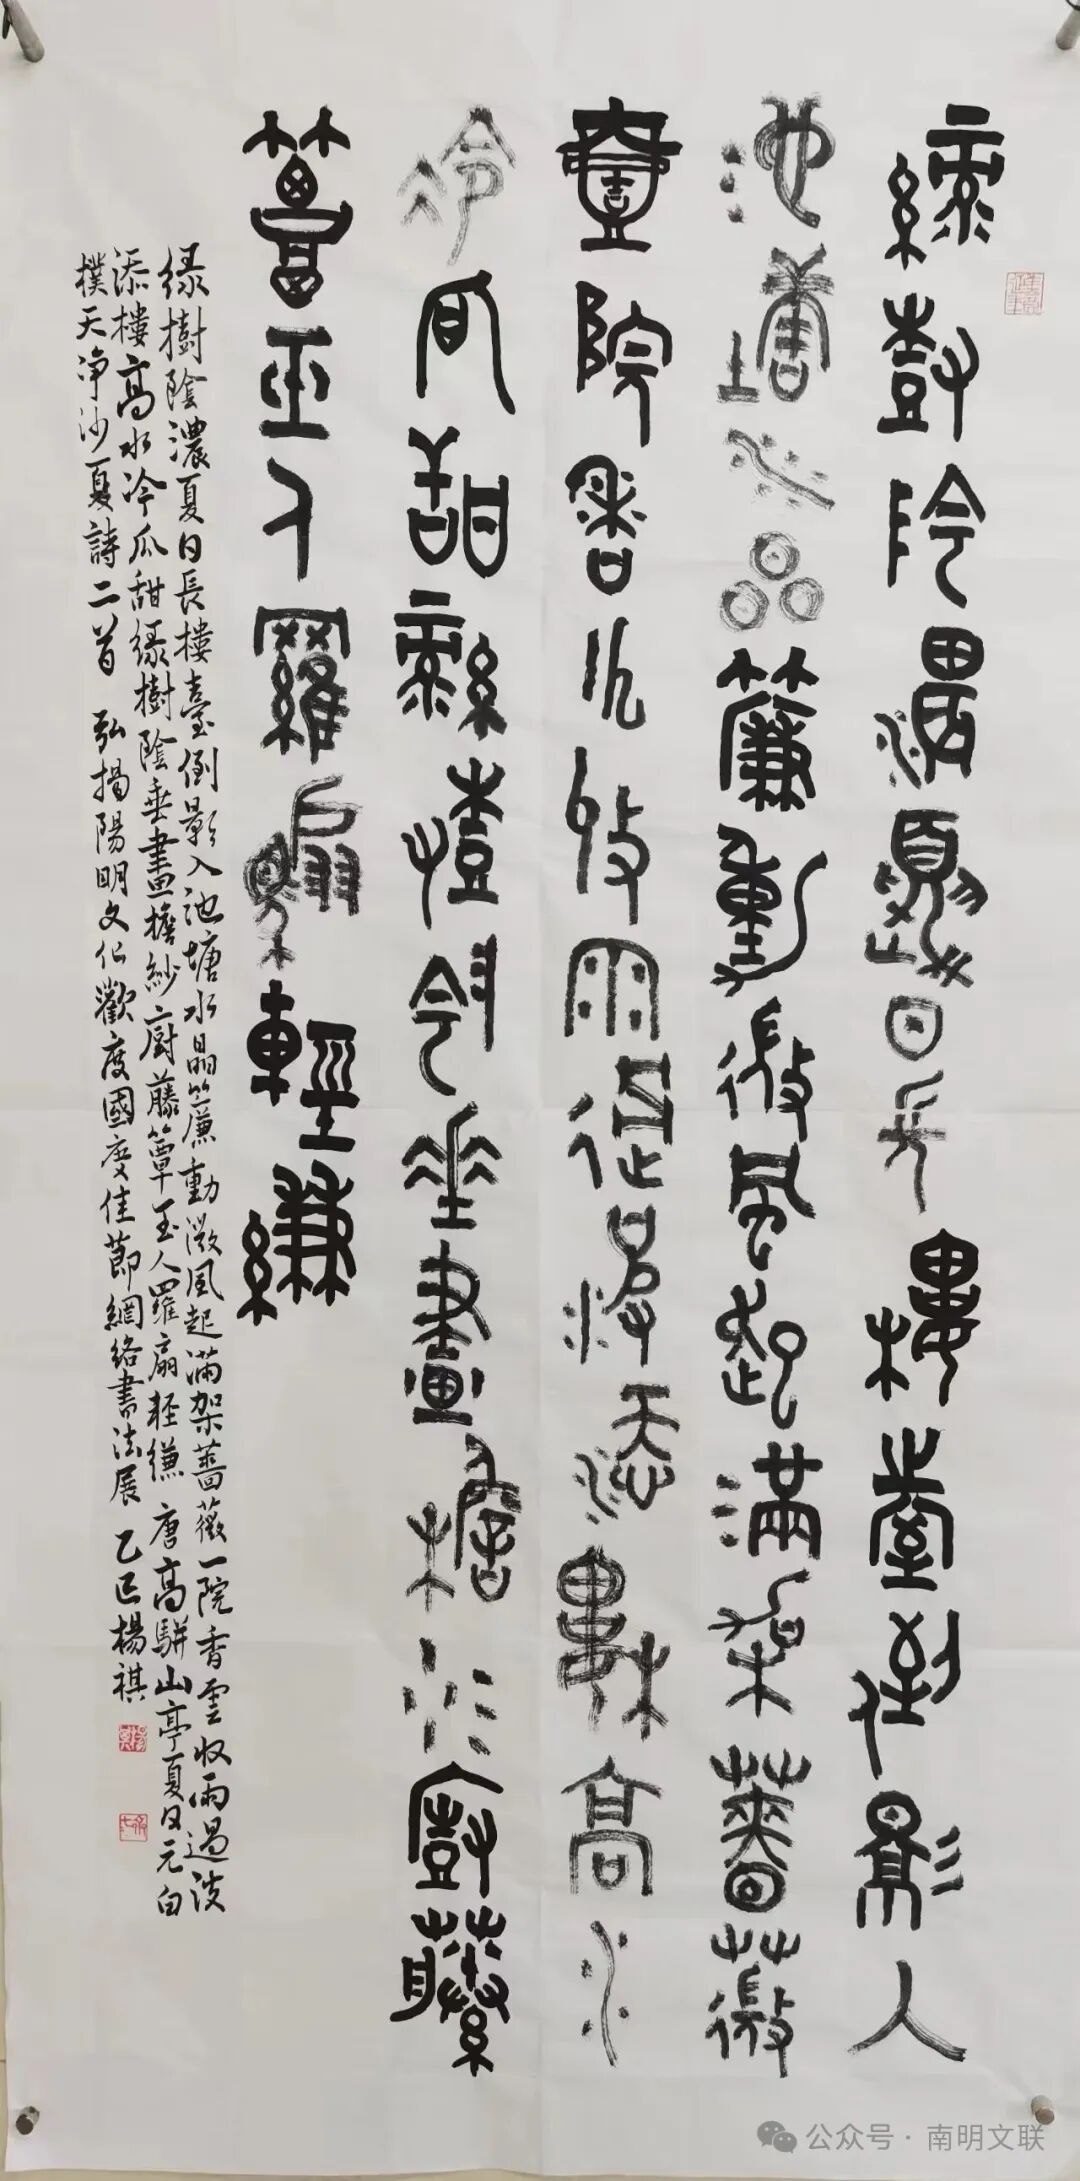 綠樹陰濃夏日長樓臺倒影入
池塘水晶簾動微風起滿架薔薇
壹院香雲收雨過波添樓高水
冷瓜甜綠樹陰垂畫檐沙廚藤
簟玉人羅扇輕縑
緑樹陰濃夏日長樓臺倒影入池塘水晶簾動微風起滿架薔薇一院香雲收雨過波
添樓高水冷瓜甜緑樹陰垂畫檐紗廚藤簟玉人羅扇輕縑 唐高駢山亭夏日元白
樸天净沙夏詩二首 弘揚陽明文化歡度國慶佳節網絡書法展 乙巳楊祺
公众号·南明文联